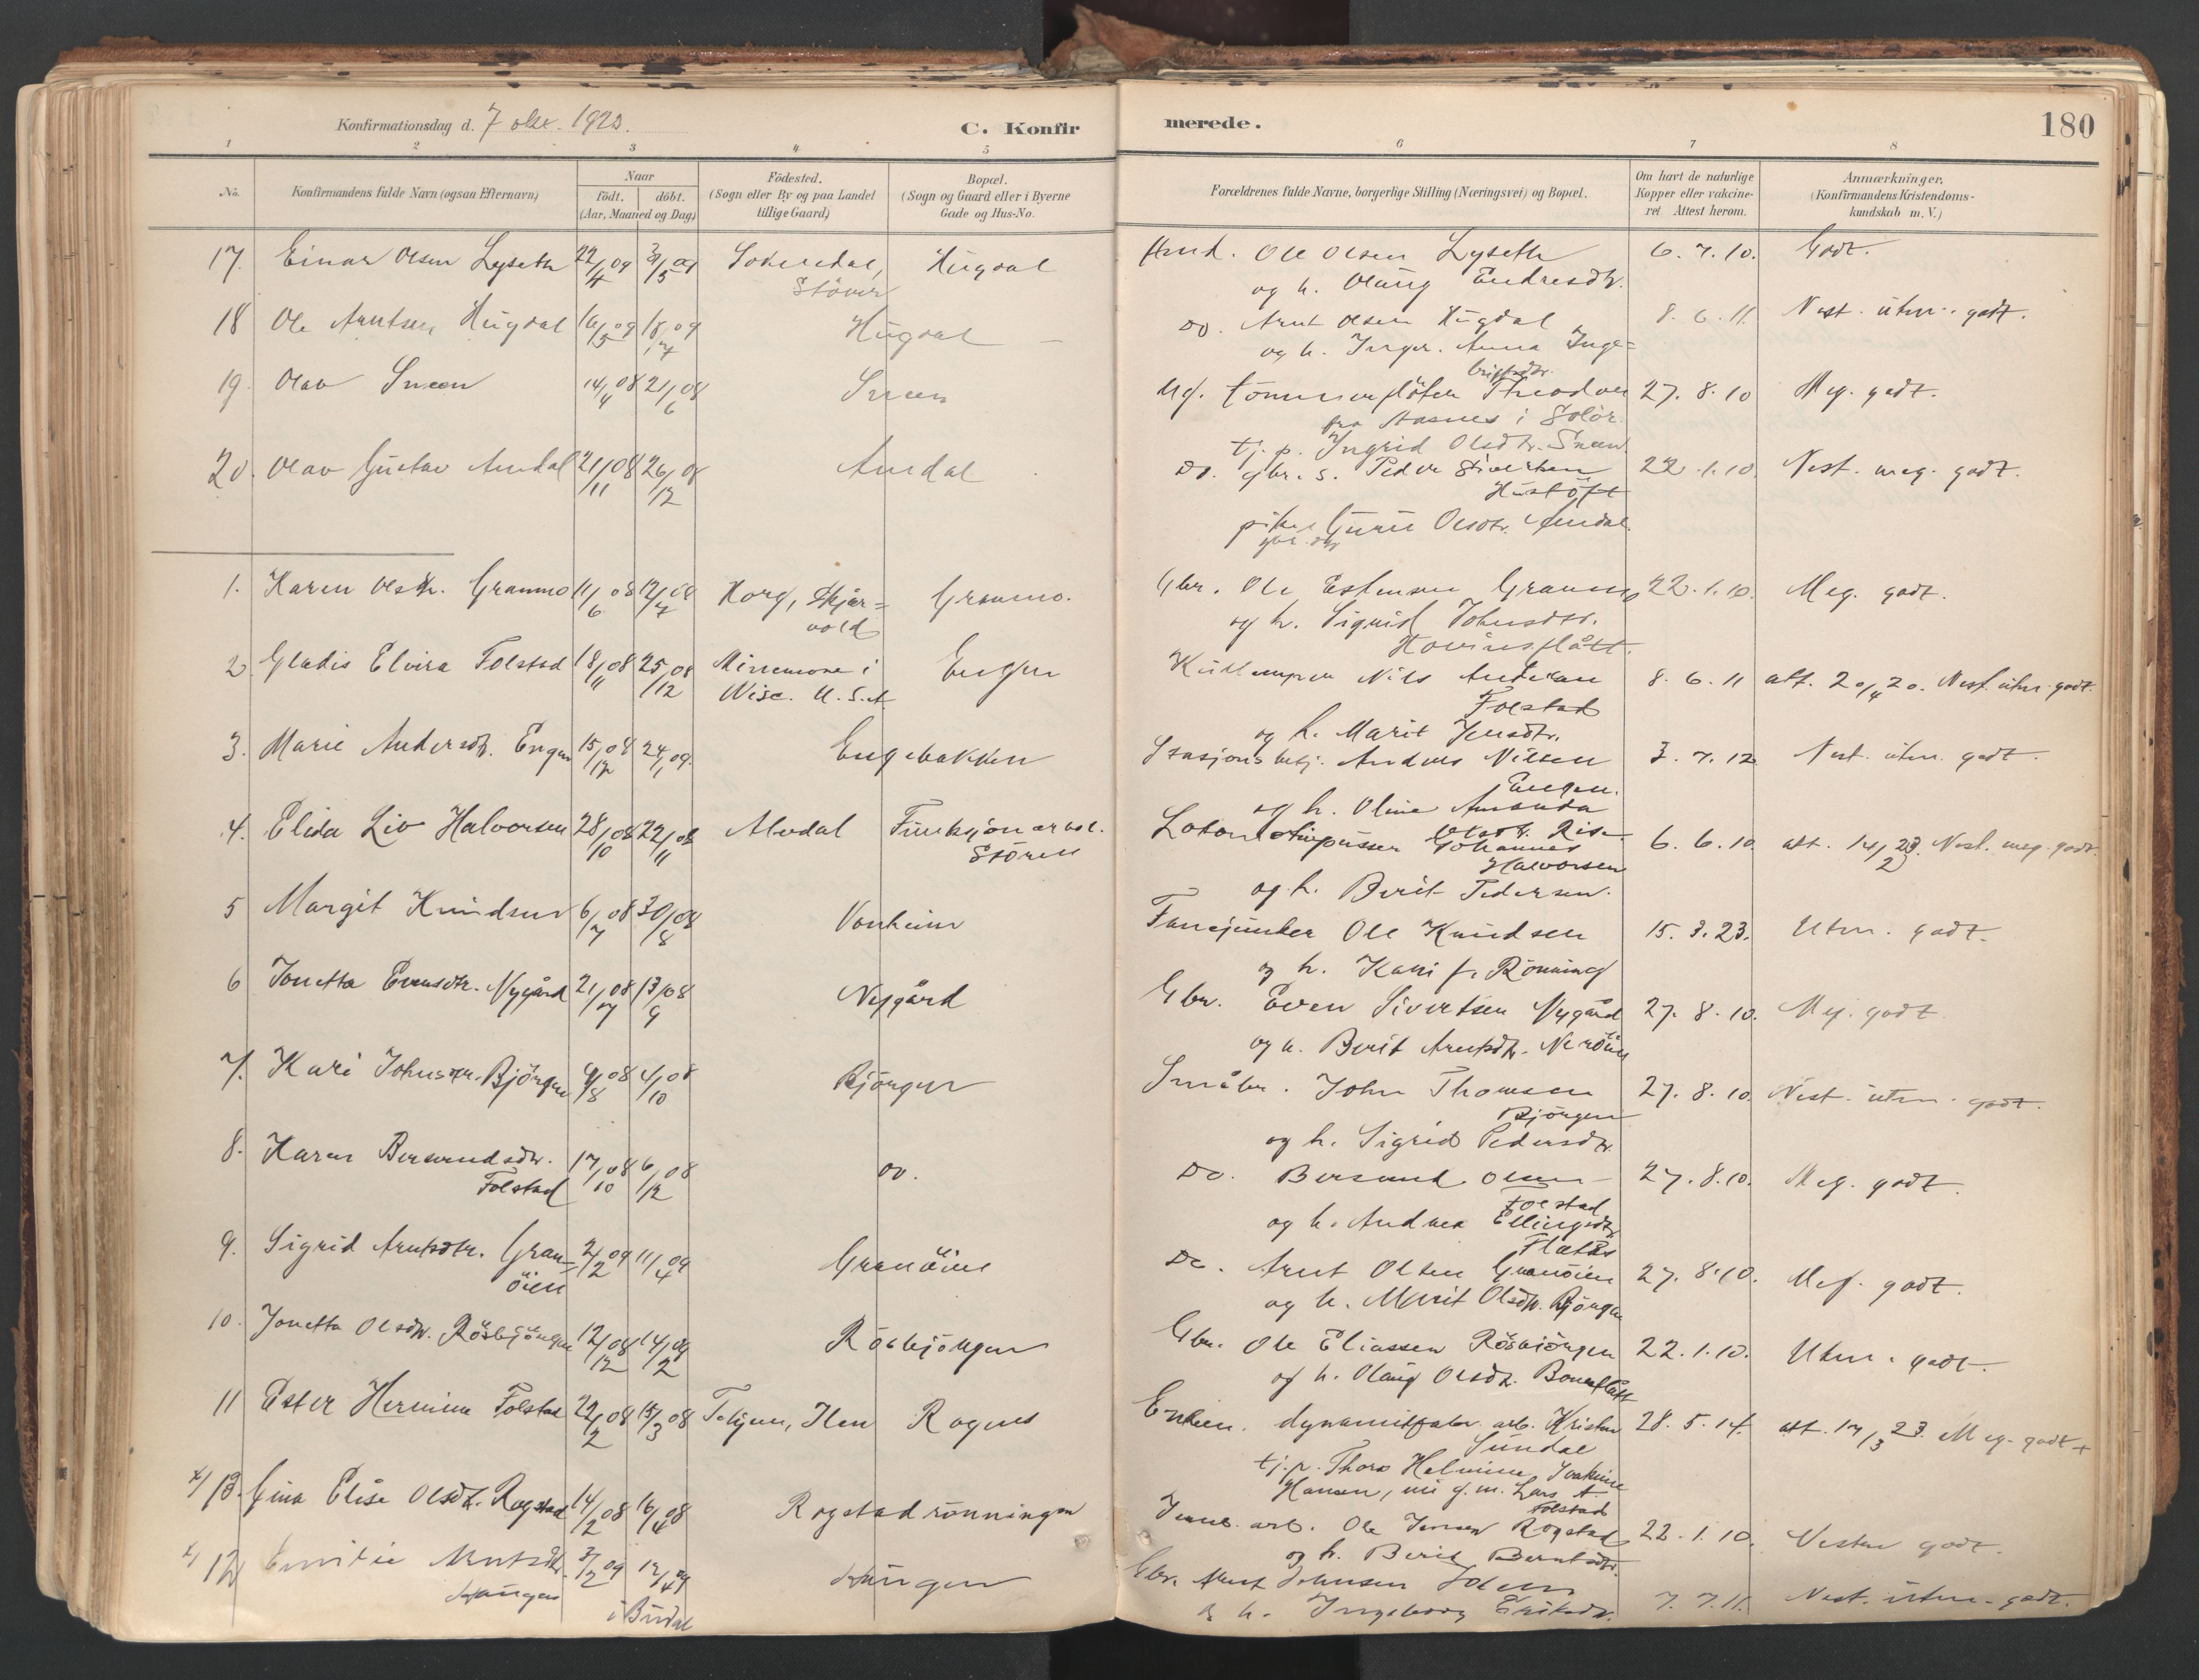 Konfirmationsdag d. 7 okt. 1923.
C. Konfirmerede.
180
1 2 3 4 5 6 7 8
No.
Konfirmandens fulde Navn (ogsaa Efternavn)
Naar
født. døbt.
(Aar, Maaned og Dag)
Fødested.
(Sogn eller By og paa Landet
tillige Gaard)
Bopæl.
(Sogn og Gaard eller i Byerne
Gade og Hus-No.
Forældrenes fulde Navne, borgerlige Stilling (Næringsvei) og Bopæl.
Om havt de naturlige
Kopper eller vakcine-
ret. Attest herom.
Anmærkninger,
(Konfirmandens Kristendoms-
kundskab m. V.)
17. Einar Olsen Lyseth 22/4 09 31/5 09 Soknedal, Hugdal Ole Olsen Lyseth 6.7.10. Godt.
Støren
og h. Olaug Endresdtr.
18 Ole Arntsen Hugdal 16/5 09 18/7 09 Hugdal Do. Arnt Olsen Hugdal 8.6.11. Nest. utm. godt.
og h. Inger Anna Inge=
briktsdtr.
19. Olav Sneen 14/4 08 21/6 08 Sneen Ug. tømmerfløter Theodor 27.8.10 Meg. godt.
fra Aasnes i Solør.
tj. p. Ingrid Olsdtr. Sneen
20. Olav Gustav Amdal 21/11 08 26/12 08 Amdal Do. gbr. s. Peder Sivertsen 22.1.10. Nest. meg. godt.
Hustøft
pike Guru Olsdtr. Amdal.
1. Karen Olsdtr. Granmo 11/6 08 12/7 08 Horg, Skjer= Granmo. Gbr. Ole Estensen Granmo 22.1.10. Meg. godt.
vold
og h. Sigrid Johnsdtr.
Hovinsflått.
2 Gladis Elvira Folstad 18/11 08 25/12 08 Minemone i Engen Nils Andersen 8.6.11 att. 20/4 20. Nest. utm. godt.
Wisc. U.S.A. Folstad
og h. Marit Jensdtr.
3. Marie Andersdtr. Engen 15/12 08 24/1 09. Engebakken Stasjonsbetj. Anders Nilsen 3.7.12 Nest. utm. godt.
Engen.
og h. Oline Amanda
Olsdtr. Rise
4. Elida Liv Halvorsen 28/10 08 22/11 08 Alvdal Funksjonærbol. Lokomotivpusser Johannes 6.6.10. att. 14/2 23. Nest. meg. godt.
Støren Halvorsen
og h. Berit Pedersen.
5 Margit Knudsen 6/7 08 30/8 08 Vonheim Fanejunker Ole Knudsen 15.3.23. Utm. godt.
og h. Kari f. Rønning
6 Jonetta Evensdtr. Nygård 21/7 08 13/9 08 Nygård Gbr. Even Sivertsen Nygård 27.8.10. Meg. godt.
og h. Berit Arntsdtr. Nerøien
7. Kari Johnsdtr. Bjørgen 9/8 08 4/10 08 Bjørgen Småbr. John Thomsen 27.8.10. Nest. utm. godt.
Bjørgen
og h. Sigrid Pedersdtr.
8. Karen Bersvendsdtr. 17/10 08 6/12 08 do. Do. Bersvend Olsen 27.8.10. Meg. godt.
Folstad Folstad
og h. Andrea Ellingsdtr.
Flatås
9. Sigrid Arntsdtr. Gran= 2/2 09 11/4 09 Granøien Do. Arnt Olsen Granøien 27.8.10. Meg. godt.
øien
og h. Marit Olsdtr. Bjørgen
10. Jonetta Olsdtr. Røsbjørgen 12/12 08 14/2 09 Røsbjørgen Gbr. Ole Eliassen Røsbjørgen 22.1.10. Utm. godt.
og h. Olaug Olsdtr. Bonesflått
11 Ester Hermine Folstad 22/2 08 15/3 08 Ilen Rognes dynamitfabr. arb. Kristen 28.5.14. att. 17/3 23. Meg. godt +
Sundal
tj. p. Thora Helmine Joakime
Hansen, nu g. m. Lars A.
Folstad
x/ 13. Gina Elise Olsdtr. Rogstad 14/2 08 16/4 08 Rogstadrønningen Jernb. arb. Ole Jensen Rogstad 22.1.10. Nesten godt.
og h. Berit Berntsdtr.
x/ 12 Emilie Arntsdtr. 3/2 09 12/4 09 Haugen Gbr. Arnt Johnsen 7.7.11. Nest. utm. godt.
Haugen i Budal
og h. Ingeborg Eriksdtr.